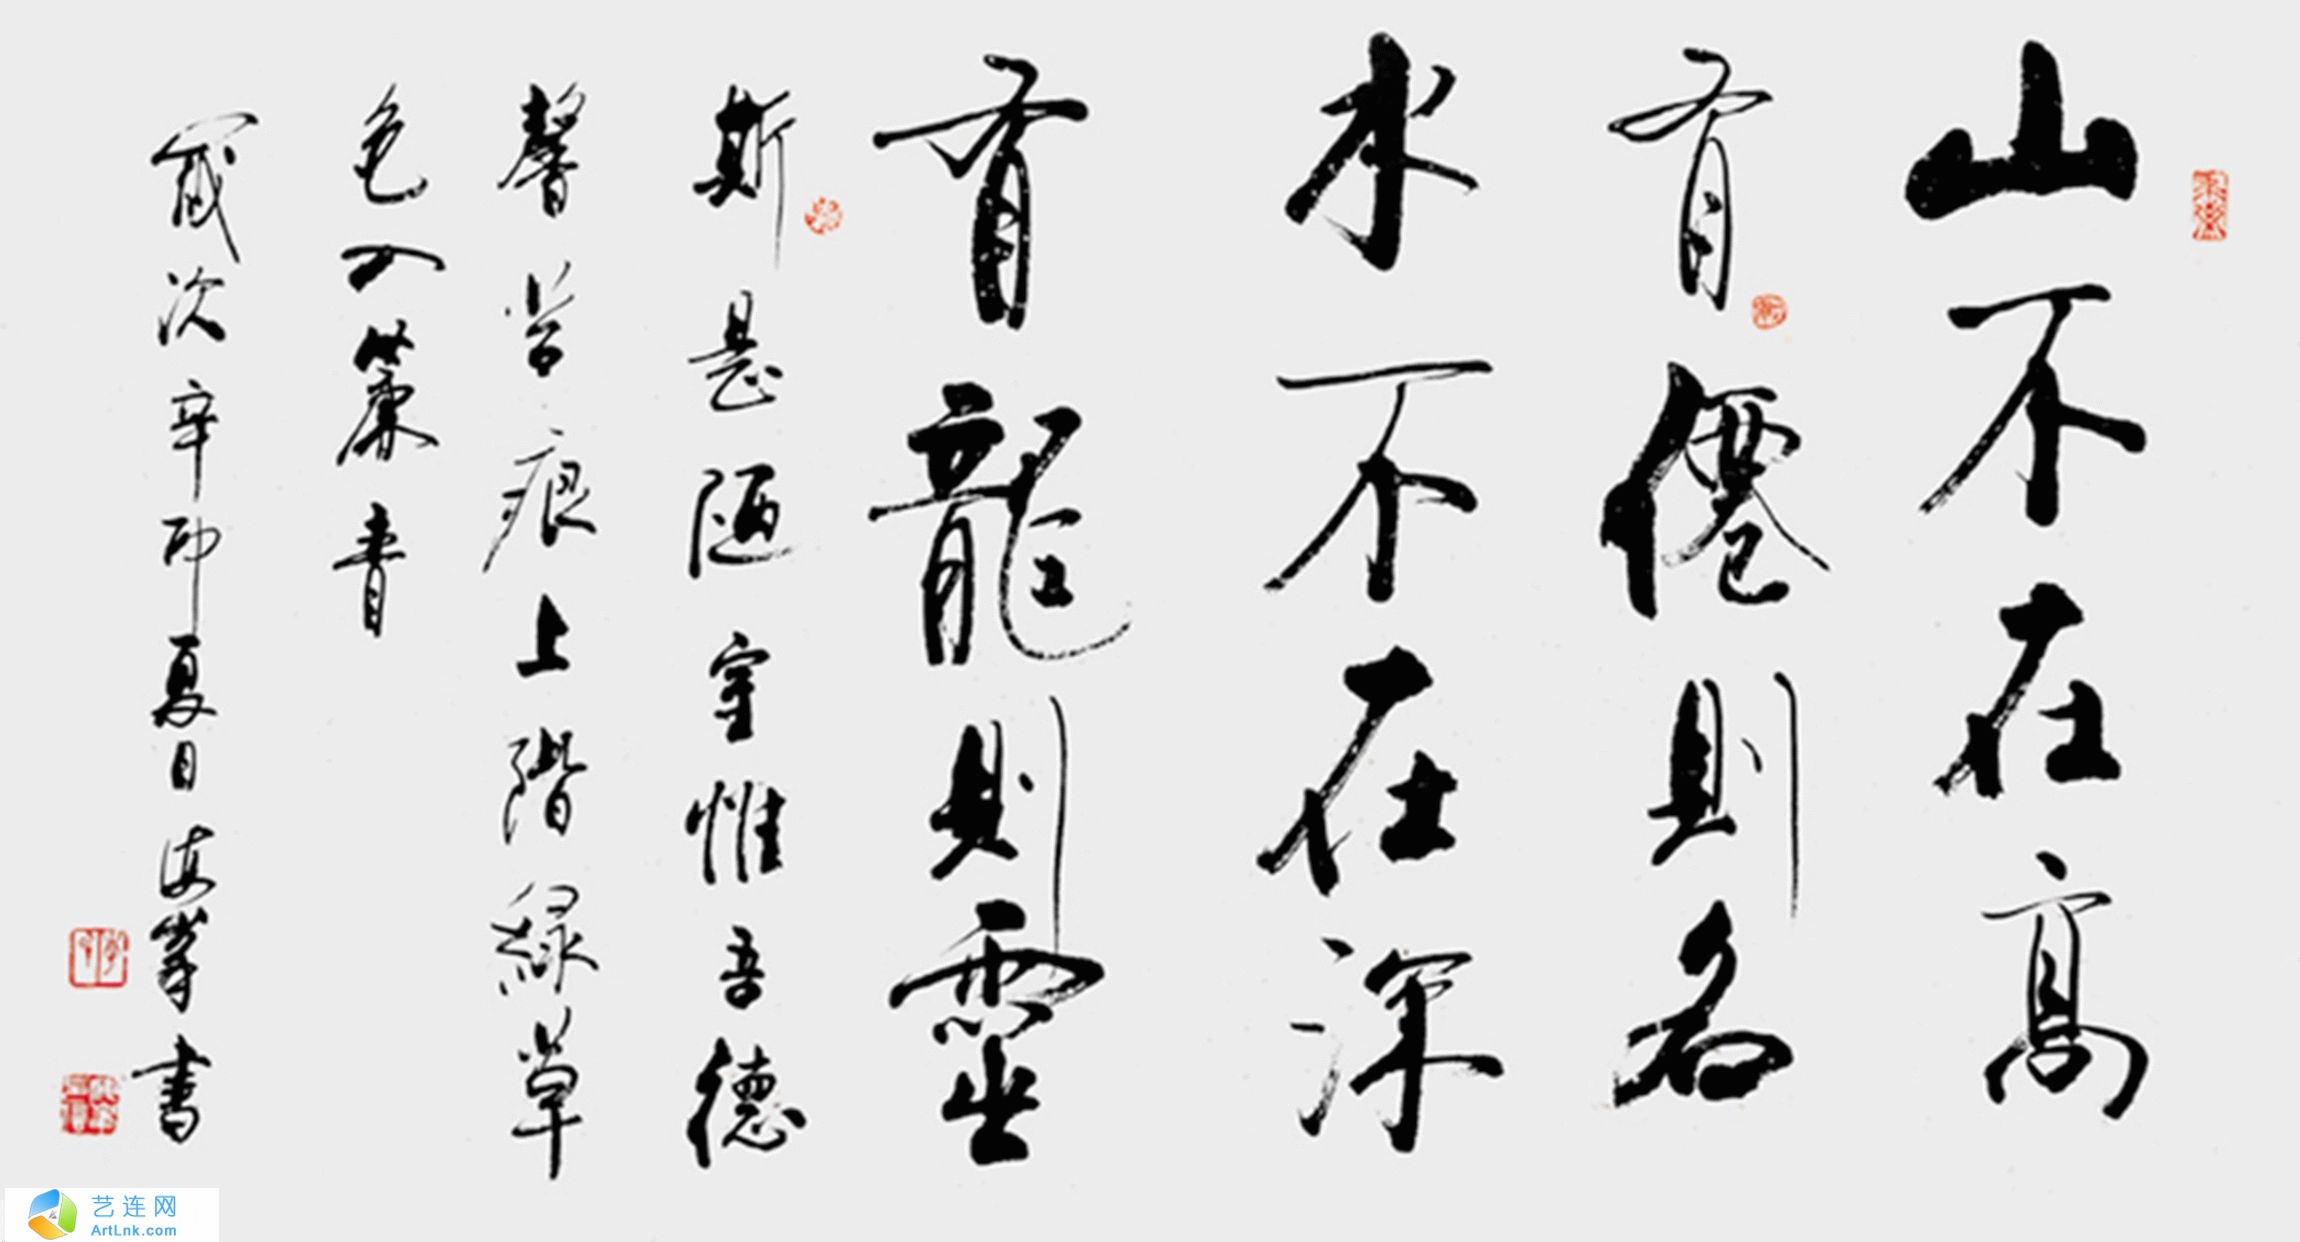 山不在高
有僊則名
水不在深
有龍則靈
斯是陋室惟吾德
馨苔痕上階綠草
色入簾青
歲次辛卯夏日海峯書
艺连网
ArtLnk.com